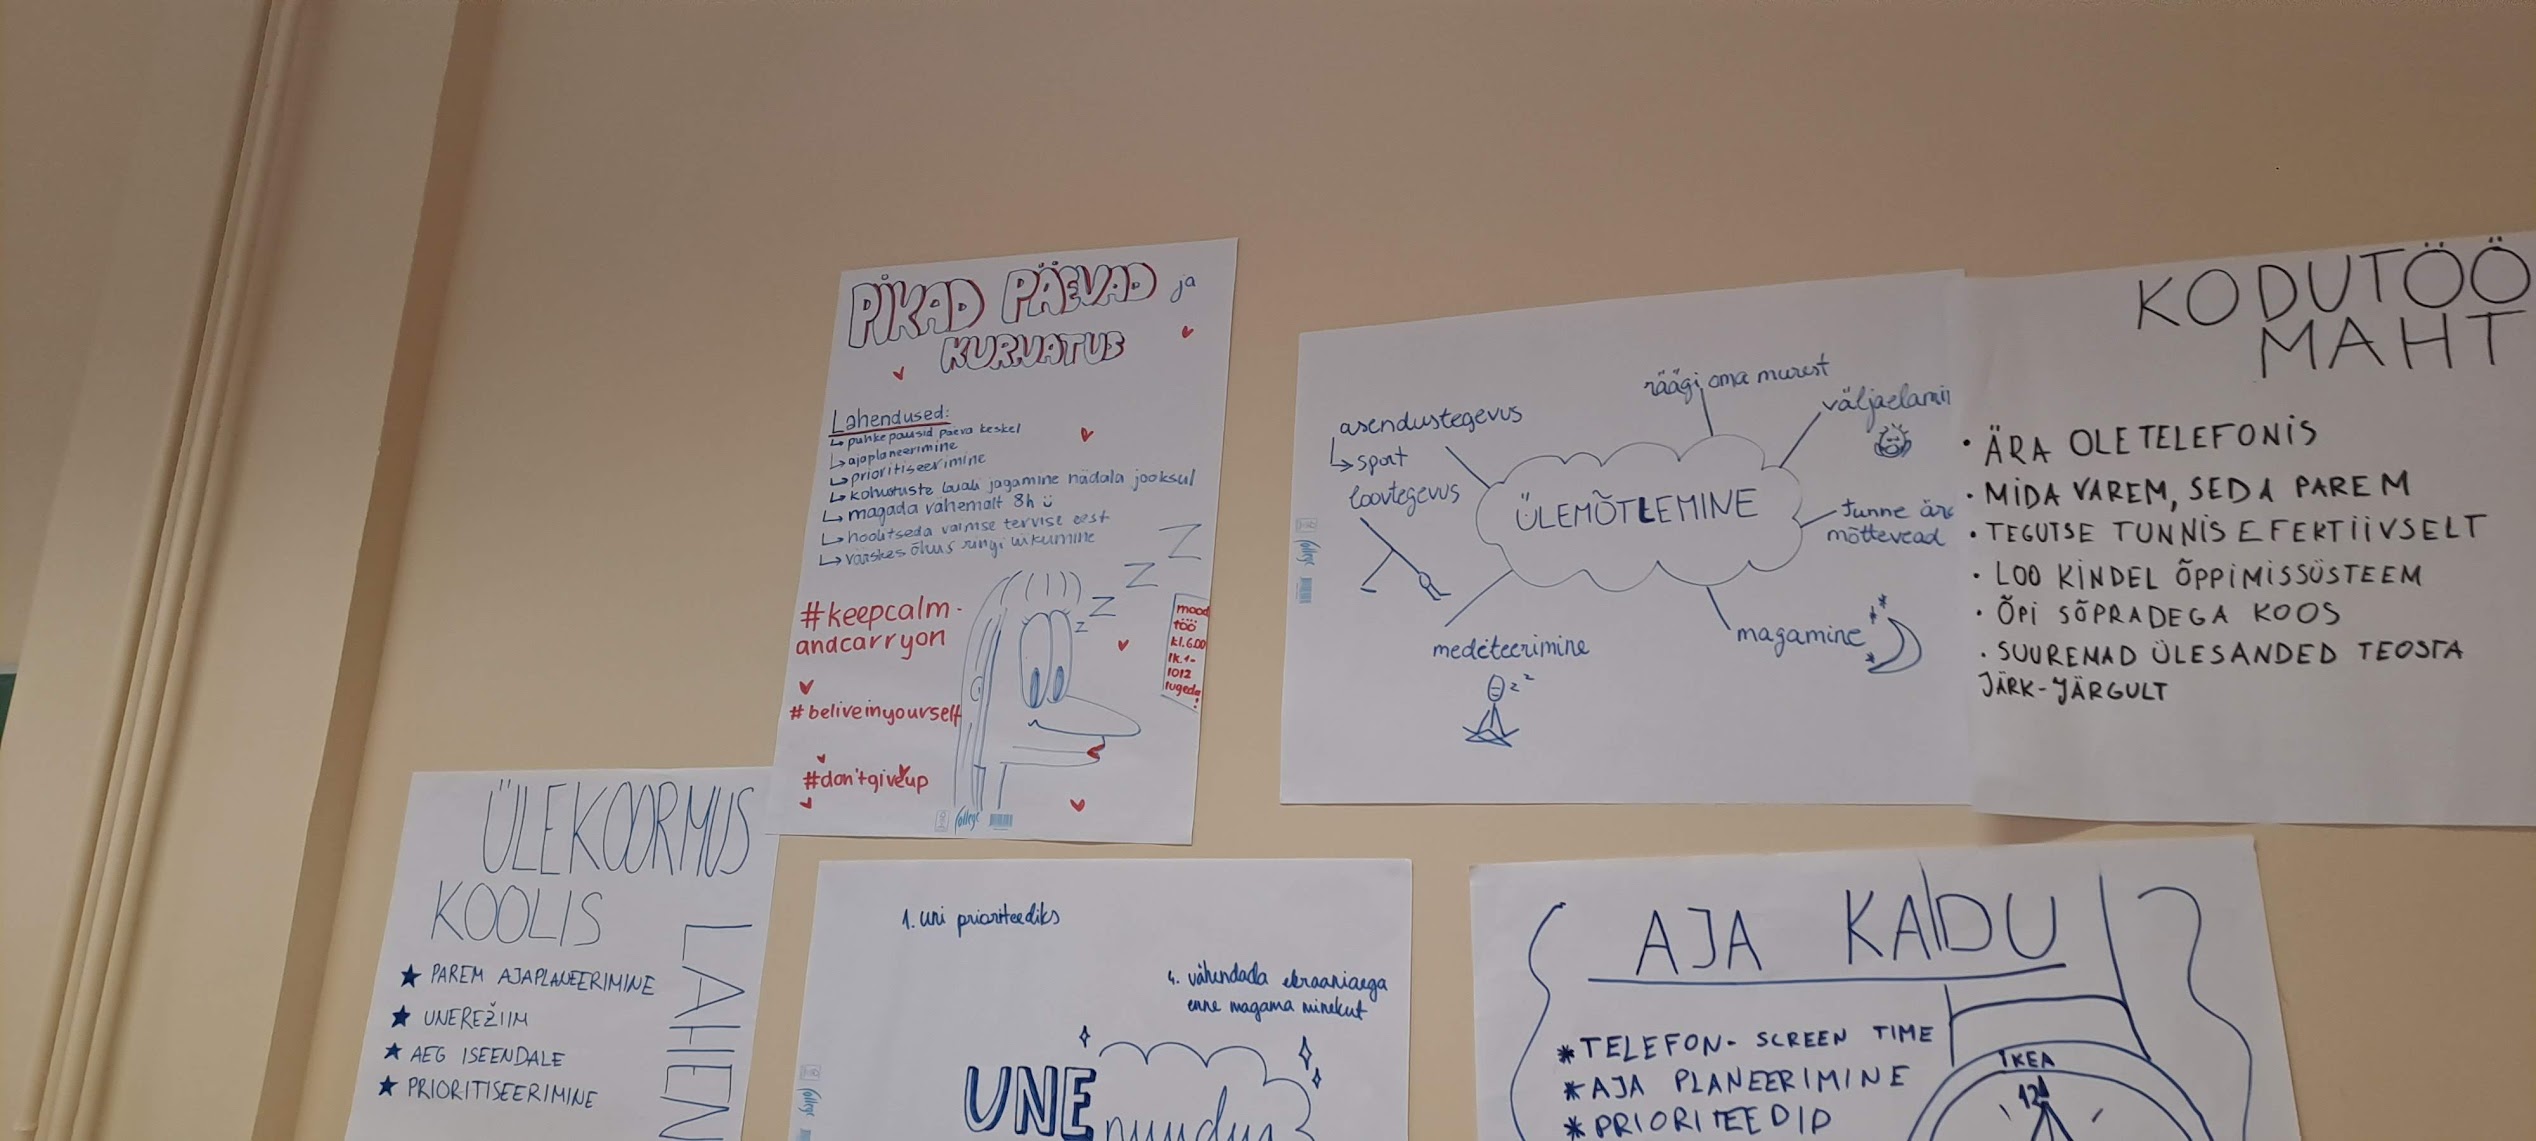 PIKAD PÄEVAD ja
KURVATUS
Lahendused:
↳ puhkepausid päeva keskel
↳ ajaplaneerimine
↳ prioritiseerimine
↳ kohustuste laiali jagamine nädala jooksul
↳ magada vähemalt 8h
↳ hoolitseda vaimse tervise eest
↳ värskes õhus ringi liikumine
Z
Z
Z
z
#keepcalm-
andcarryon
#beliveinyourself
#don'tgiveup
mood
töö
kl.6.00
lk.1-
1012
lugeda!
college
räägi oma murest
väljaelami
asendustegevus
↳ sport
loovtegevus
ÜLEMÕTLEMINE
tunne ära
mõttevead
magamine
mediteerimine
z z
college
KODUTÖÖ
MAHT
• ÄRA OLE TELEFONIS
• MIDA VAREM, SEDA PAREM
• TEGUTSE TUNNIS EFEKTIIVSELT
• LOO KINDEL ÕPPIMISSÜSTEEM
• ÕPI SÕPRADEGA KOOS
• SUUREMAD ÜLESANDED TEOSTA
JÄRK-JÄRGULT
ÜLEKOORMUS
KOOLIS
★ PAREM AJAPLANEERIMINE
★ UNEREŽIIM
★ AEG ISEENDALE
★ PRIORITISEERIMINE
LAHEN
1. uni prioriteediks
4. vähendada ekraaniaega
enne magama minekut
UNE
puudus
college
AJA KADU
* TELEFON - SCREEN TIME
* AJA PLANEERIMINE
* PRIORITEEDID
IKEA
12